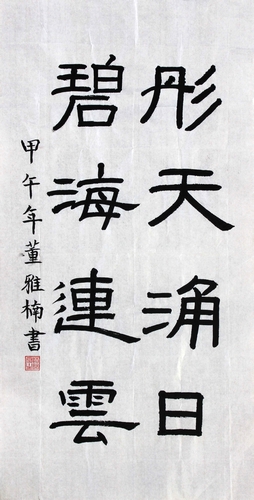 彤天涌日
碧海連雲
甲午年董雅楠書